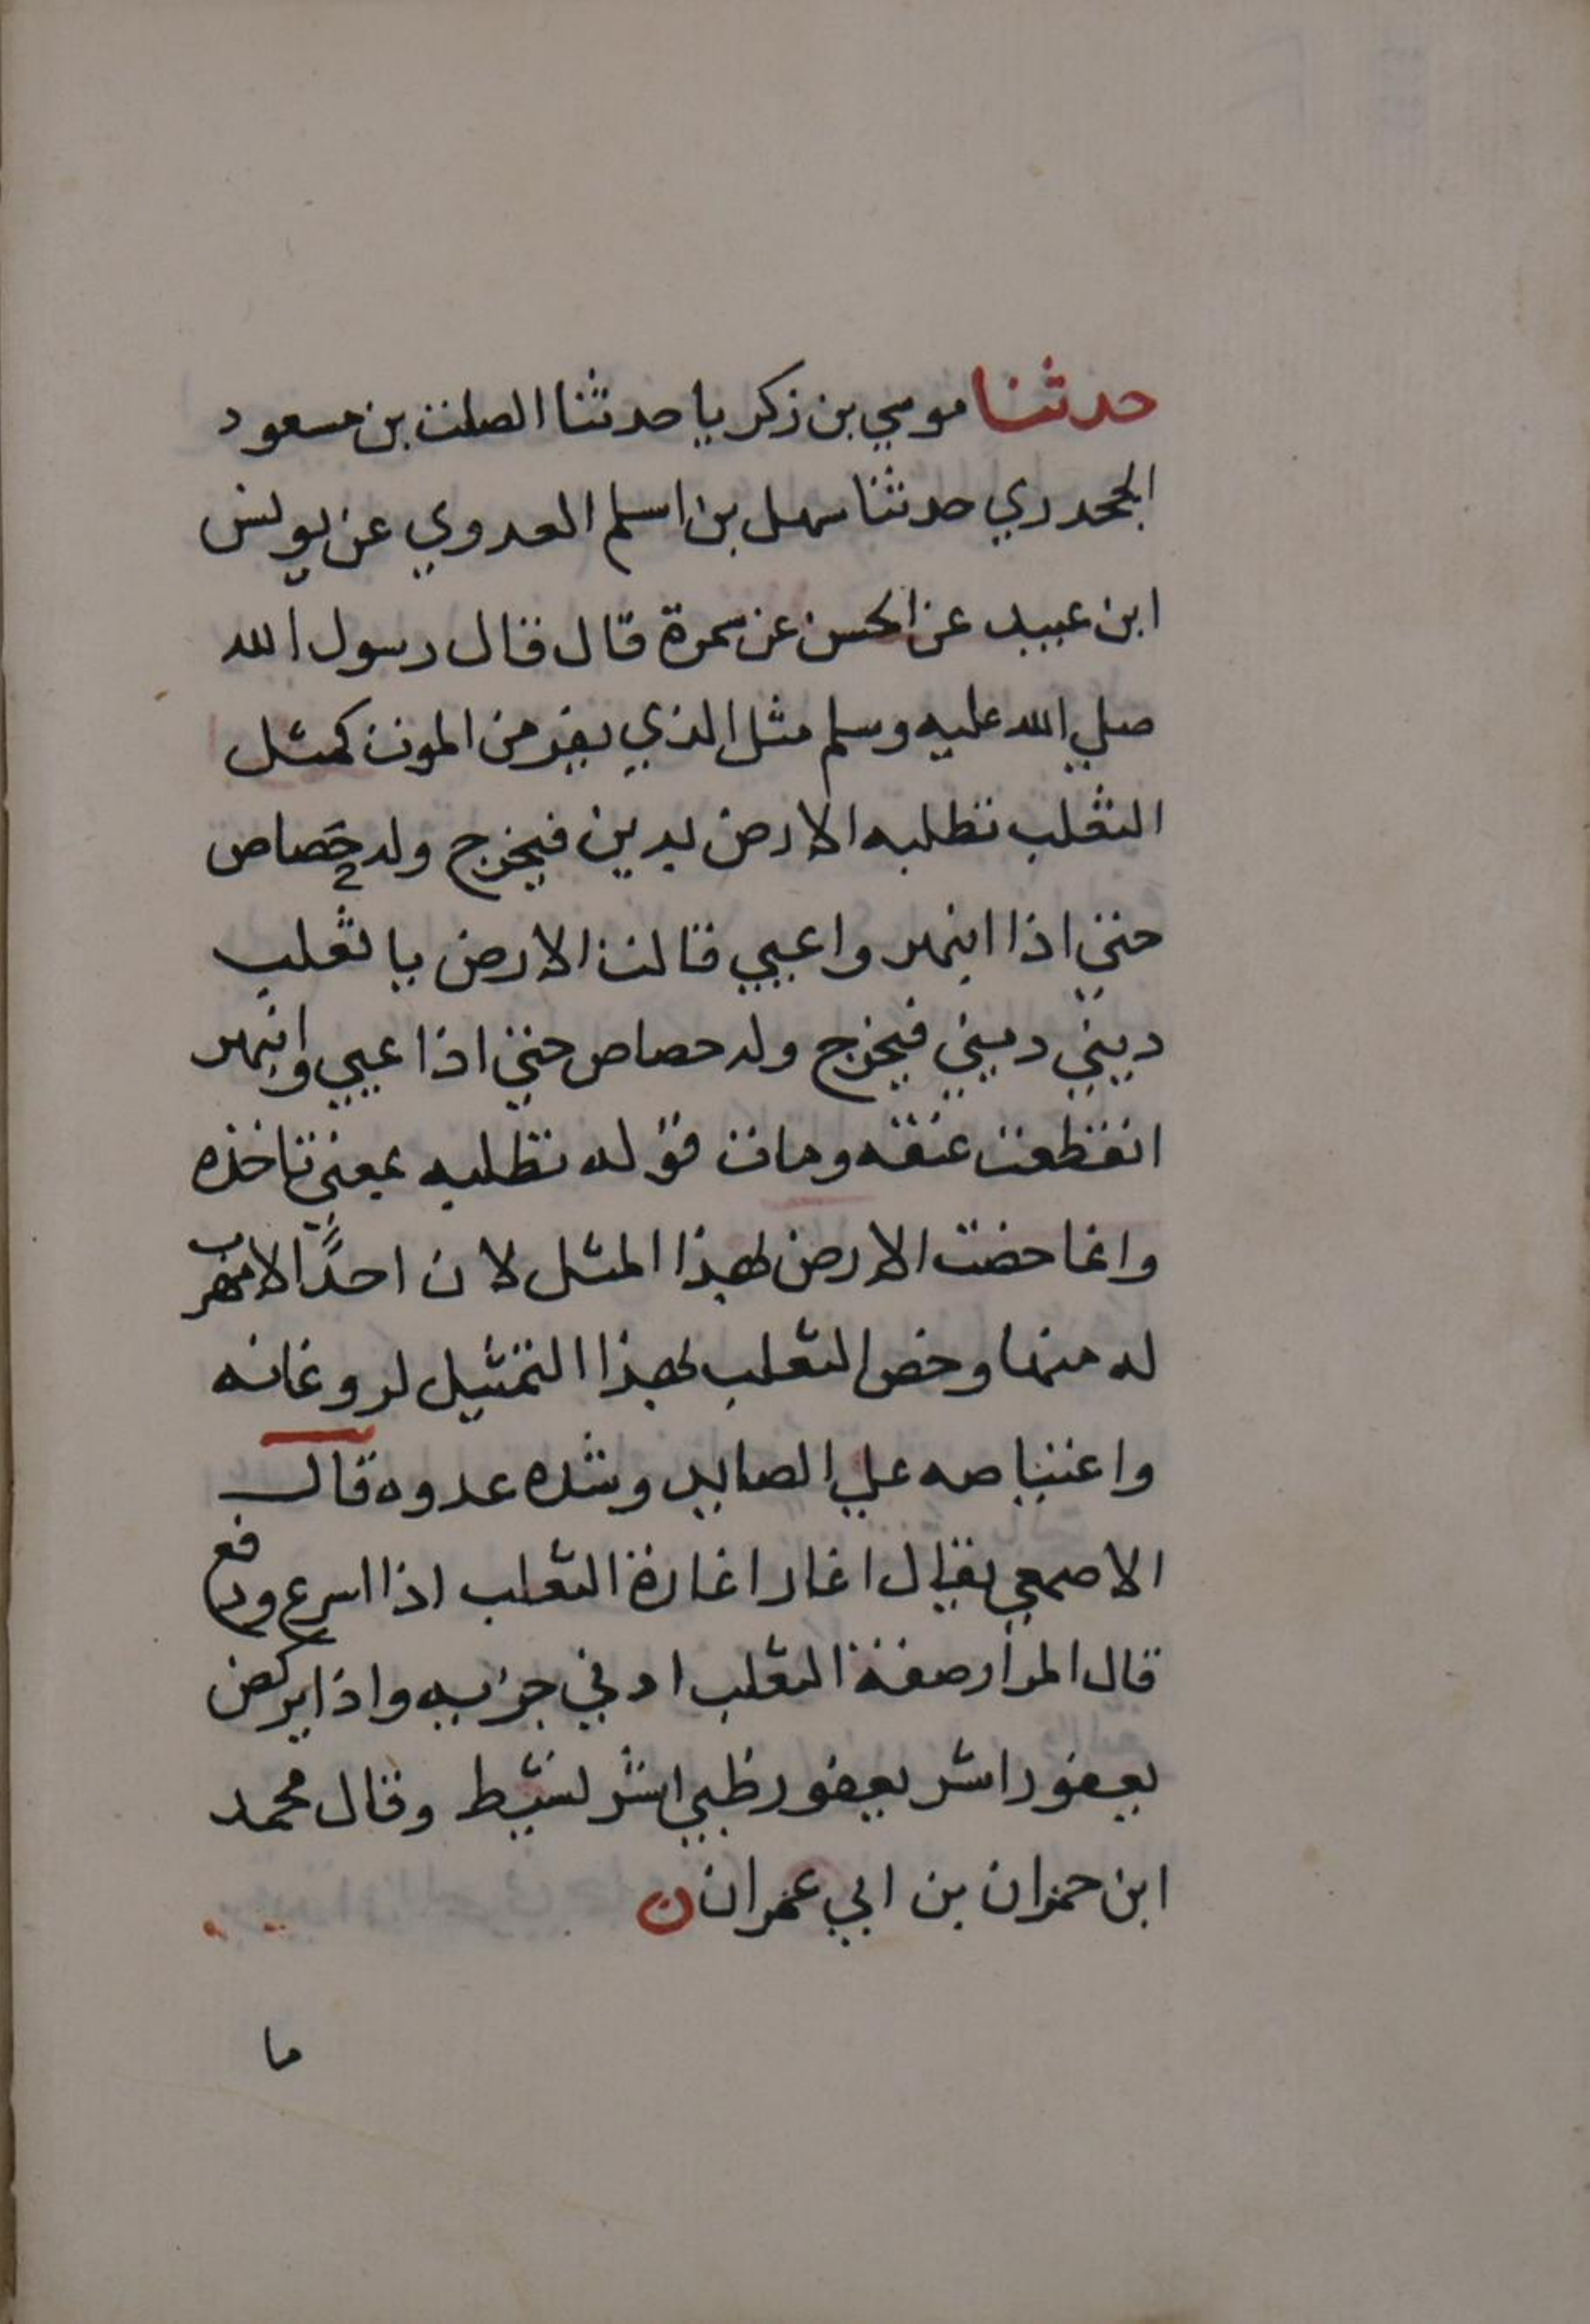 حدثنا موسي بن زكريا حدثنا الصلت بن مسعود
الجحدري حدثنا سهل بن اسلم العدوي عن يونس
ابن عبيد عن الحسن عن سمرة قال قال رسول الله
صلي الله عليه وسلم مثل الذي يفر من الموت كمثل
الثعلب تطلبه الارض بدين فيخرج وله حصاص
حتي اذا انبهر واعيي قالت الارض يا ثعلب
ديني ديني فيخرج وله حصاص حتي اذا عيي وانبهر
انقطعت عنقه ومات قوله تطلبه بمعني تاخذه
وانما خصت الارض بهذا المثل لان احدًا لا مهرب
له منها وخص الثعلب بهذا التمثيل لروغانه
واعتياصه علي الصايد وشده عدوه قال
الاصمعي يقال اغار اغارة الثعلب اذا اسرع ودفع
قال المرار صفة الثعلب ادني جريه واذا يركض
يعفور اشر يعفور ظبي اشر نشيط وقال محمد
ابن حمران بن ابي عمران ن
ما